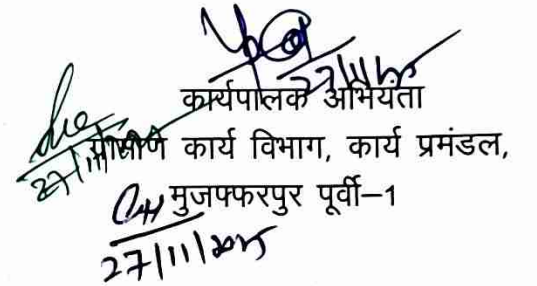 27/11/25
कार्यपालक अभियंता
ग्रामीण कार्य विभाग, कार्य प्रमंडल,
27/11/
मुजफ्फरपुर पूर्वी–1
27/11/2025